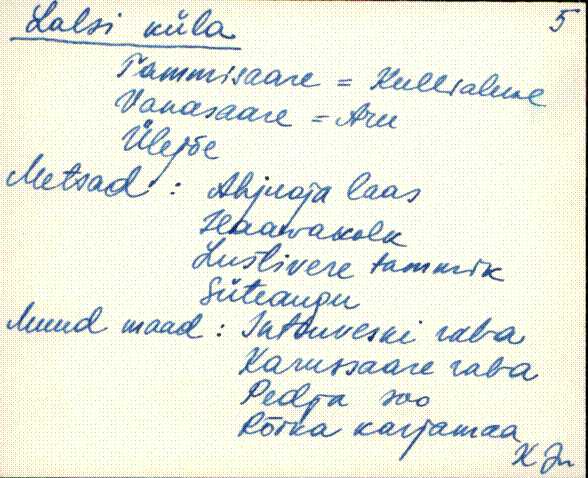 Lalsi küla 5
Tammisaare = Kullialune
Vanasaare = Aru
Ülejõe
Metsad : Ahjuoja laas
Haavakolk
Lustivere tammik
Süteaugu
Muud maad : raba
Karussaare raba
Pedja soo
Rõika karjamaa